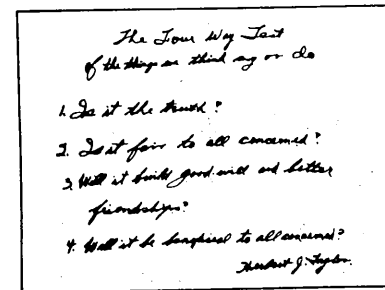 The Four Way Test
of the things we think say or do
1. Is it the truth?
2. Is it fair to all concerned?
3. Will it build good will and better
friendships?
4. Will it be beneficial to all concerned?
Herbert J. Taylor